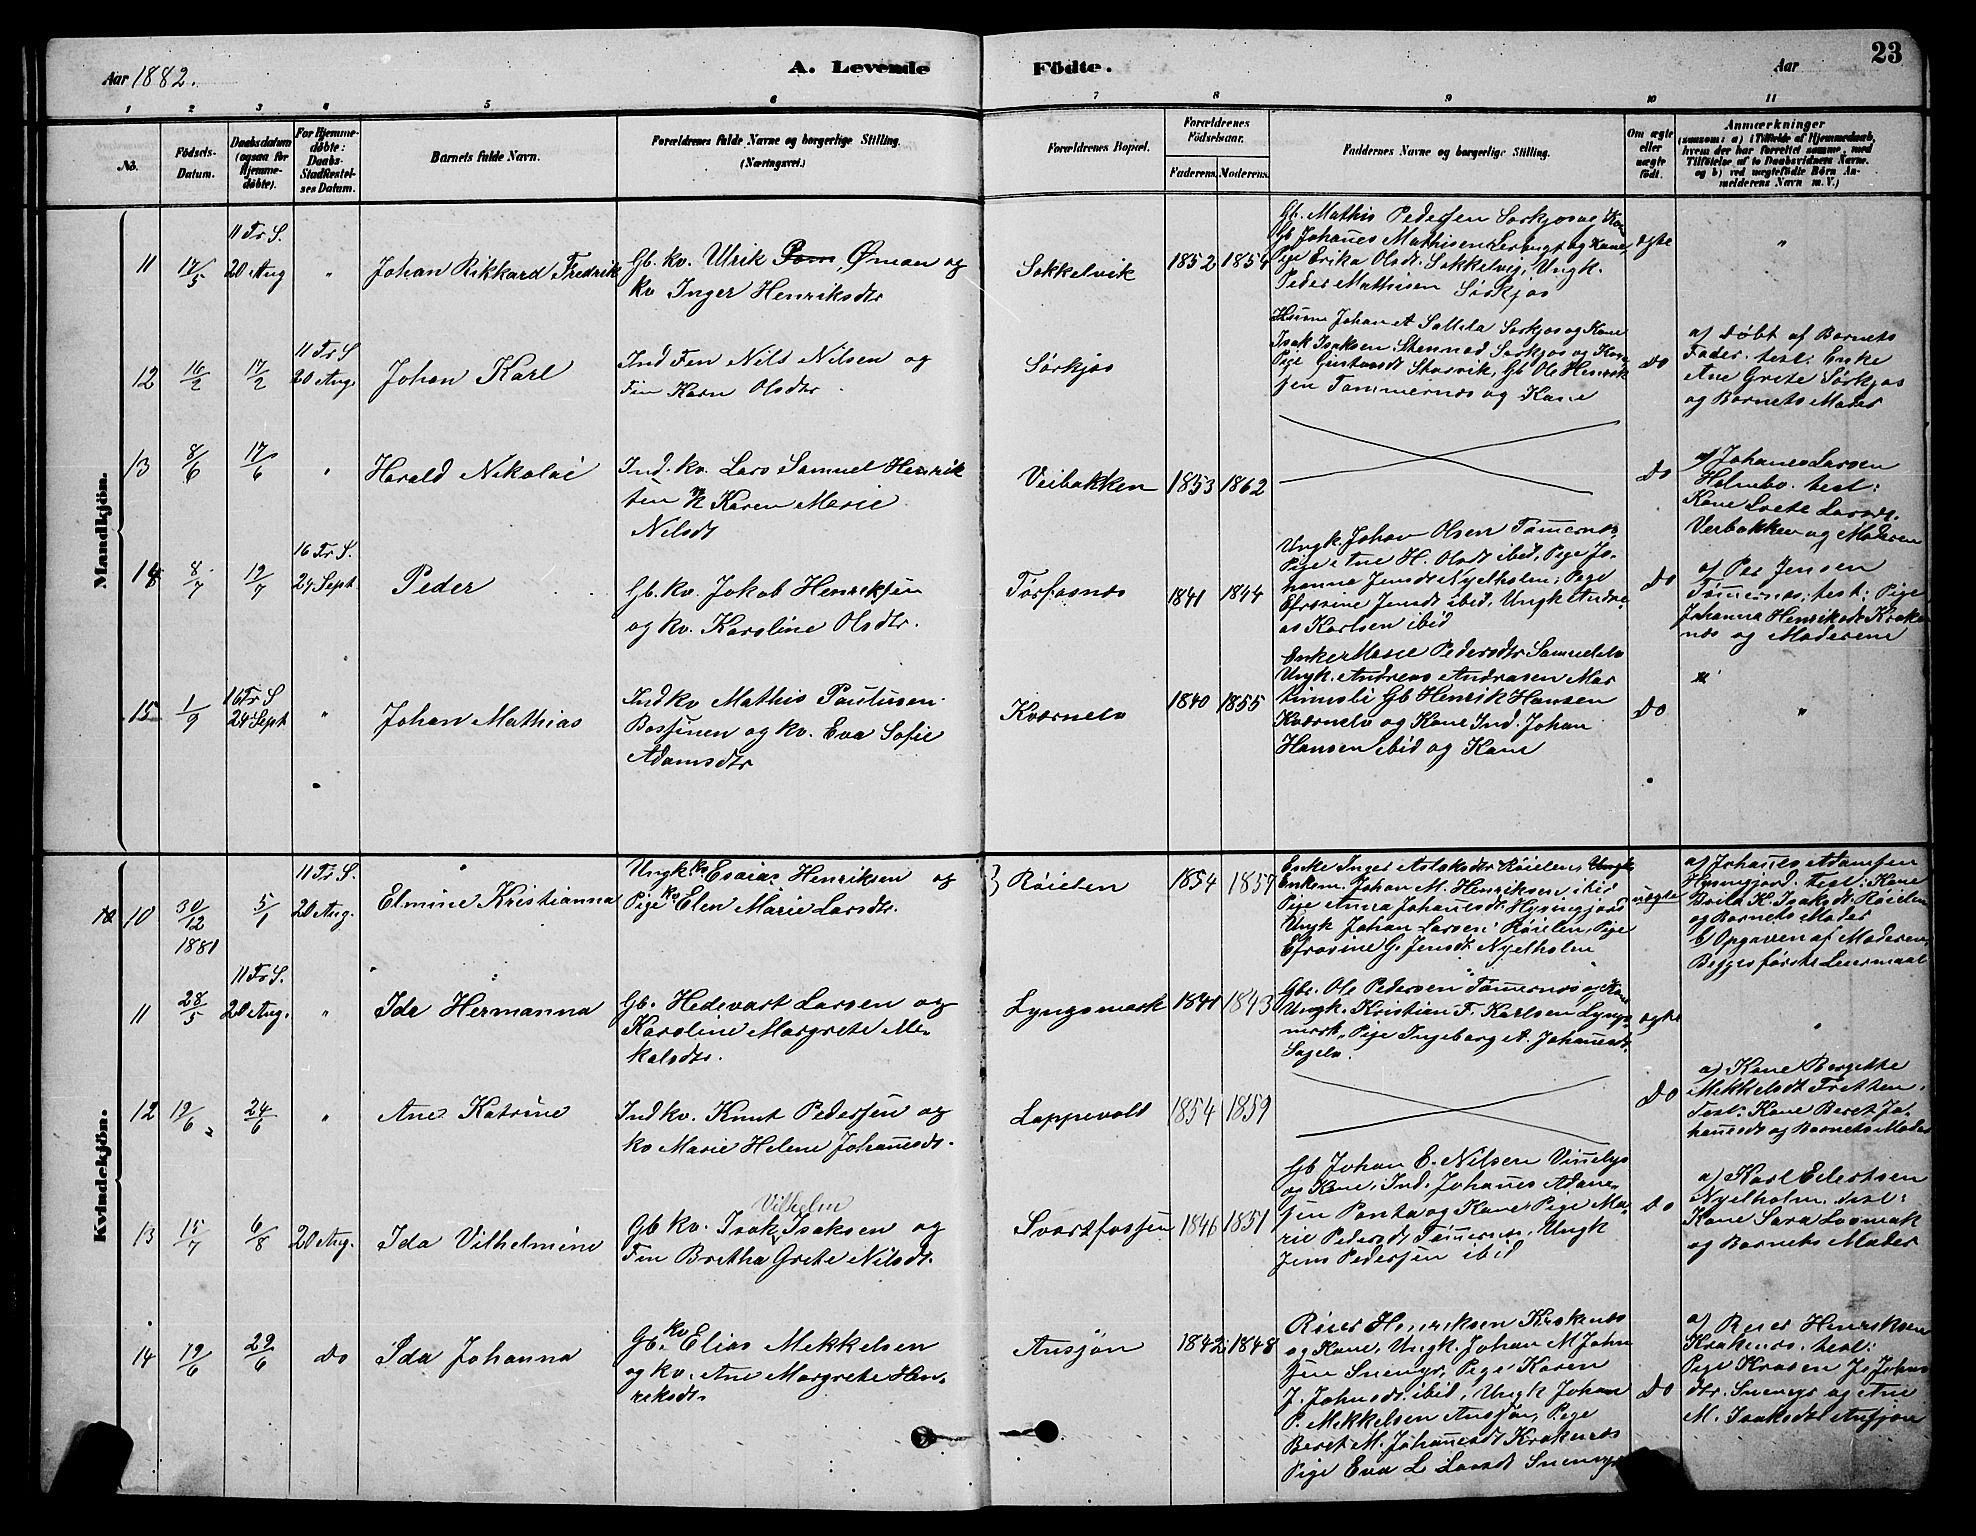 Aar 1882.
A. Levende Födte.
Aar
23
1 2 3 4 5 6 7 8 9 10 11
No.
Födsels-Datum.
Daabsdatum (ogsaa for Hjemme-döbte).
For Hjemme-döbte: Daabs-Stadfæstel-ses Datum.
Barnets fulde Navn.
Forældrenes fulde Navne og borgerlige Stilling. (Næringsvei.)
Forældrenes Bopæl.
Forældrenes Födselsaar.
Faderens. Moderens.
Faddernes Navne og borgerlige Stilling.
Om ægte eller uægte födt.
Anmærkninger
(saasom: a) i Tilfælde af Hjemmedaab, hvem der har forrettet samme, med Tilföielse af to Daabsvidners Navne. og b) ved uægtefödte Börn An-melderens Navn m. V.)
Mandkjön.
11
17/5
11 Tr. S.
20 Aug
"
Johan Rikkard Fredrik
Gb. kv. Ulrik Öman og
kv Inger Henriksdtr
Sokkelvik
1852 1854
Gb. Mathis Pedersen Sørkjosne Kone
Gb Johanes Mathisen Leirbugt og Kone,
Pige Erika Olsdt. Sokkelvig, Ungk.
Peder Mathisen Sørkjos
ægte
"
12
16/2
17/2
11 Tr S
20 Aug.
Johan Karl
Ind Fin Nils Nilsen og
Fin Karn Olsdtr
Sørkjos
Johan A Sørkjos og Kone
Isak Isaksen Sørkjos og Kone
Pige Storvik, Gb Ole Henrik
sen Tømmernæs og Kone
Do
a) Døbt af Barnets
Fader. test: Enke
Ane Grete Sørkjos
og Barnets Moder
13
8/6
17/6
"
Harald Nikolai
Ind. kv. Lars Samuel Henrik
sen & Karen Marie
Nilsdt
Veibakken
1853 1862
Do
a) Johanes Larsen
Holmbo. test:
Kone Larsdt.
Verbakken og Moderen
14
8/7
12/7
16 Tr. S.
24 Sept
Peder
Gb. kv. Jakob Henriksen
og kv. Karoline Olsdtr.
Torfosnæs
1841 1844
Ungk. Johan Olsen Tømernæs,
Pige Ane H. Olsdt ibid, Pige Jo-
hanna Jensdt Nyelholm, Pige
Efrosine Jensdt ibid, Ungk Andre-
as Karlsen ibid
Do
a) Per Jensen
Tømernæs, test: Pige
Johanna Henriksdt Krake-
næs og Moderene
15
1/9
16 Tr S
24 Sept
"
Johan Mathias
Ind kv Mathis Paulusen
og kv. Eva Sofie
Adamsdtr
Kværnelv
1840 1855
Enke Marie Pedersdtr
Ungk. Andreas Andrasen Mar
Gb Henrik Hansen
Kværnelv og Kone Ind. Johan
Hansen ibid og Kone
Do
"
Kvindekjön.
10
30/12
1881
5/1
11 Tr. S.
20 Aug.
Elmine Kristianna
Ungk kv Esaias Henriksen og
Pige kv Elen Marie Larsdtr.
Røielen
1854 1857
Enke Inger Aslaksdtr Røielen,
Enkem. Johan M. Henriksen ibid
Pige Anna Johanesdt
Ungk Johan Larsen Røielen, Pige
Efrosine G. Jensdt Nyelholm
uægte
a) Johanes Adamsen
test: Kone
Brita K. Isaksdt. Røielen
og Barnets Moder
b) Opgaven af Moderen,
Begges første Leiermaal
11
28/5
11 Tr. S.
20 Aug.
"
Ida Hermanna
Gb. Hedevart Larsen og
Karoline Margrete Me-
kelsdtr.
Lyngsmark
1841 1843
Gbr. Ole Pedersen Tømernæs og Kone
Ungk. Kristian F. Karlsen Lyngs-
mark, Pige Ingeborg A. Johanesdt.
Sagelv.
ægte
"
12
12/6
24/6
"
Ane Katrine
Ind kv. Knut Pedersen og
kv Marie Helene Johanesdt.
Lappevold
1854 1859
Do
a) Kone Bergitte
Mikkelsdt Tretten.
test: Kone Beret Jo-
hanesdt og Barnets Moder
13
15/7
6/8
20 Aug.
Ida Vilhelmine
Vilhelm
Gb kv. Isak Isaksen og
Fin Bretha Grete Nilsdt.
Svartfossen
1846 1851
Gb Johan E. Nilsen
og Kone, Ind. Johanes Adam-
sen Ponta og Kone Pige Ma-
rie Pedersdt Tømernæs, Ungk
Jens Pedersen ibid
Do
a) Karl Edertsen
Nyelholm. test:
Kone Sara
og Barnets Moder
14
12/6
29/6
do
Ida Johanna
Gb. kv Elias Mekkelsen
og kv. Ane Margrete Hen-
riksdt.
Ansjøn
1842 1848
Reier Henriksen Kraknæs
og Kone, Ungk. Johan M John
sen Pige Karen
J. Johnsdt. ibid, Ungk Johan
P. Mekkelsen Ansjøn, Pige
Beret M. Johanesdt Kraknæs
Pige Eva L Larsdt
Do
a) Reier Henriksen
Kraknæs. test:
Pige Karen J. Johns
dtr. og Ane
M. Isaksdt Ansjøn